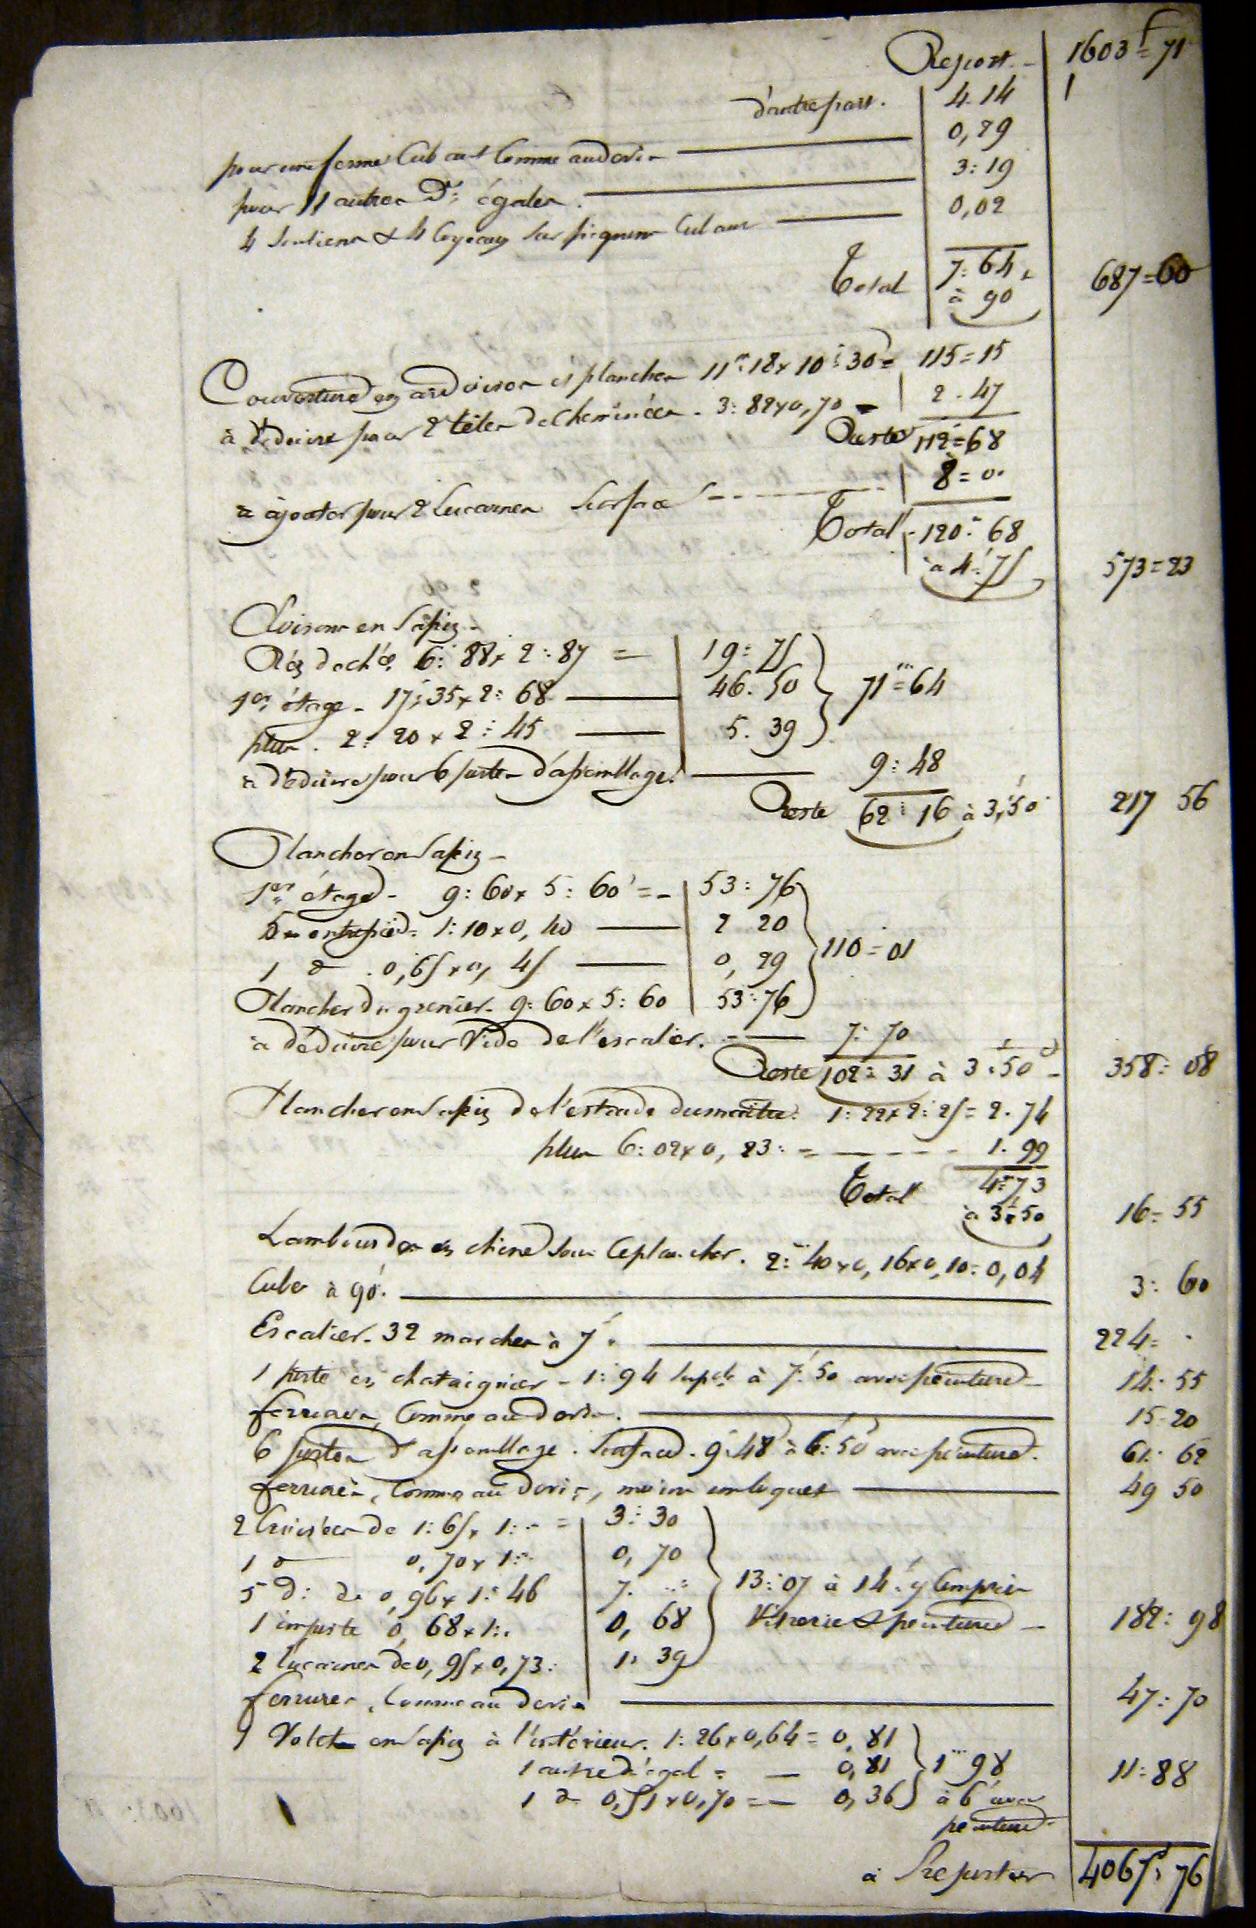 Report - 1603f=71
d'autre part. 4.14
pour une ferme Cubant Comme au devis 0,29
pour 11 autres De: égales. 3:19
4 Soutiens & 4 Coyeaux Cubant 0,02
Total 7:64,
à 90 687=60
Couverture en ardoises et planches 11m:18x10:30= 115=15
à déduire pour 2 têtes de Cheminées. 3:82x0,70 = 2.47
Reste 112=68
à ajouter pour 2 Lucarnes Surface 8=0.
Total 120:68
à 4:75 573=23
Cloisons en Sapin -
Réz de chée. 6:88x2:87 = 19:75
1er étage - 17:35x2:68 46.50 71m=64
plus. 2:20x2:45 5.39
à déduire pour 6 portes d'assemblage. 9:48
Reste 62:16 à 3f,50 217 56
Plancher en Sapin -
1er étage - 9:60x5:60 = - 53:76
5 1:10x0,40 2 20
1 d° .0,65x0,45 0,29 110=01
Plancher du grenier. 9:60x5:60 53:76
à déduire pour Vide de l'escalier. 7:70
Reste 102:31 à 3:50 - 358:08
Plancher en Sapin de l'estrade du maître. 1:22x2:25=2.74
plus 6:02x0,23:= 1.99
Total 4:73
à 3f50 16=55
Lambourdes en chêne sous le plancher. 2:40x0,16x0,10:0,04
Cube à 90. 3:60
Escalier. 32 marches à 7f. 224=.
1 porte en chataignier - 1:94 Supcie à 7f.50 avec peinture 14:55
ferrures, Comme au devis. 15-20
6 portes d'assemblage. Surface. 9:48 à 6:50 avec peinture. 61:62
ferrures, Comme au devis, moins un loquet 49 50
2 Croisées de 1:65x1:.. = 3:30
1 d° 0,70x1:. 0,70
5 d: de 0,96x1:46 7... 13:07 à 14f y Compris
1 imposte 0,68x1:. 0,68 Vitrerie & peinture - 182:98
2 lucarnes de 0,95x0,73: 1:39
ferrures, Comme au devis 47:70
1 Volet en Sapin à l'extérieur. 1:26x0,64= 0,81
1 autre d° égal = 0,81 1m98
1 d° 0,51x0,70 = 0,36 à 6f avec 11:88
peinture
à Reporter 4065f,76